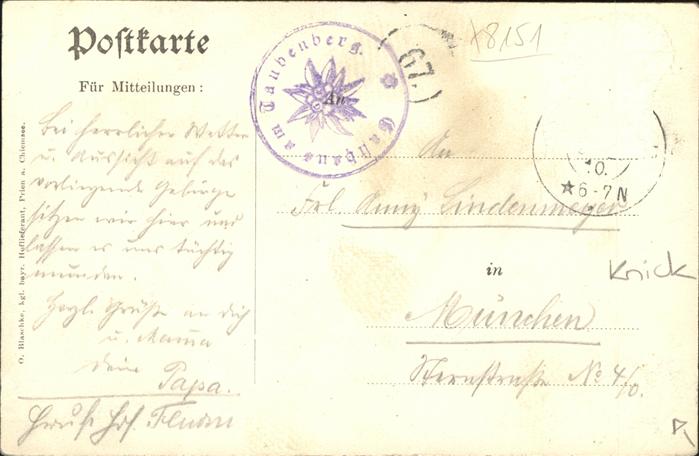 Postkarte
Für Mitteilungen:
x8151
67.
Gasthaus am Taubenberg.
An
Bei herrlichem Wetter
u. Aussicht auf das
vorliegende Gebirge
sitzen wir hier und
lassen es uns tüchtig
munden.
Herzl. Grüße an dich
u. Mama
dein
Papa.
O. Blaschke, kgl. bayr. Hoflieferant, Prien a. Chiemsee.
10.
6-7 N
An
Frl Anny Lindenmeyer
in
München
Sternstraße No 4/0.
Knick